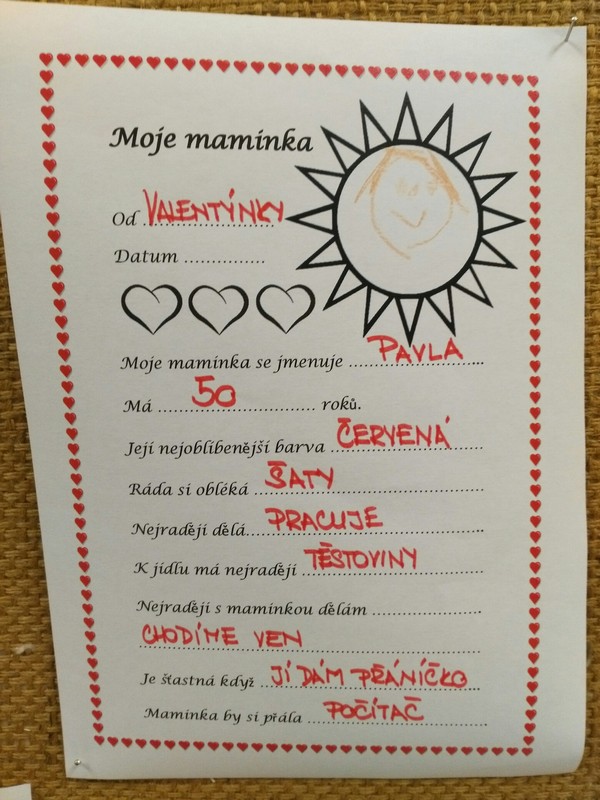 Moje maminka
Od VALENTÝNKY
Datum ..............
Moje maminka se jmenuje PAVLA
Má 50 roků.
Její nejoblíbenější barva ČERVENÁ
Ráda si obléká ŠATY
Nejraději dělá PRACUJE
K jídlu má nejraději TĚSTOVINY
Nejraději s maminkou dělám
CHODÍME VEN
Je šťastná když JÍ DÁM PŘÁNÍČKO
Maminka by si přála POČÍTAČ